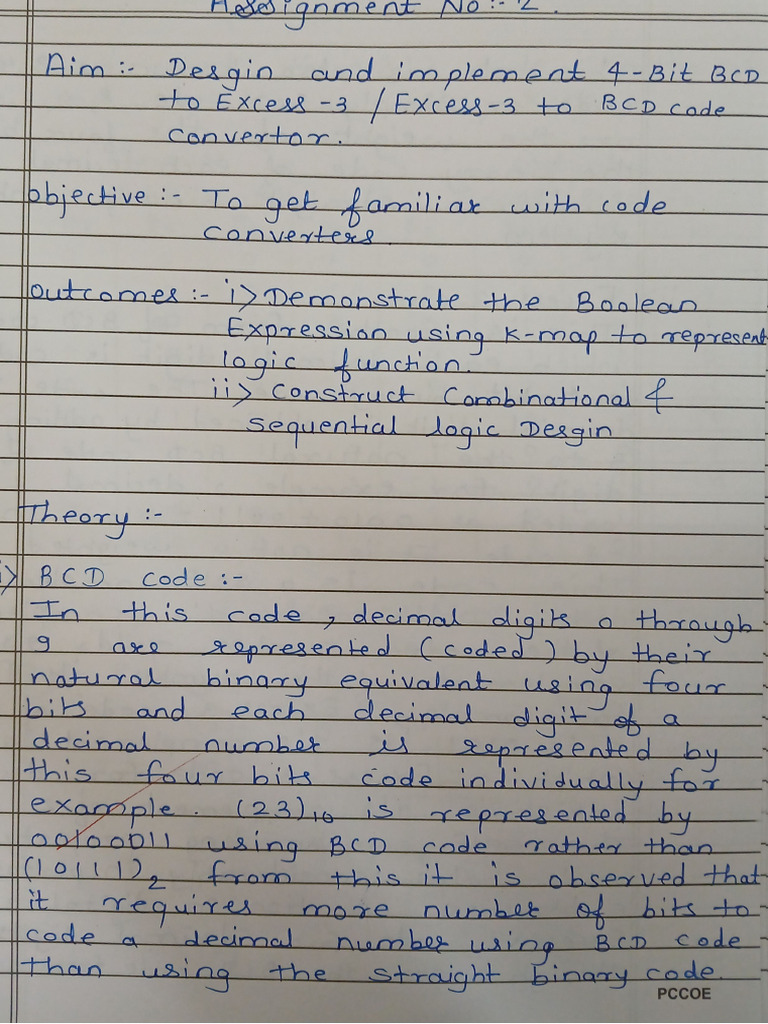 Assignment No:- 2.
Aim :- Desgin and implement 4-Bit BCD
to Excess-3 / Excess-3 to BCD code
convertor.
objective :- To get familiar with code
converters.
outcomes :- i> Demonstrate the Boolean
Expression using K-map to represent
logic function.
ii> Construct Combinational &
sequential logic Desgin
Theory :-
i> BCD code :-
In this code, decimal digits 0 through
9 are represented (coded) by their
natural binary equivalent using four
bits and each decimal digit of a
decimal number is represented by
this four bits code individually for
example. (23)₁₀ is represented by
00100011 using BCD code rather than
(10111)₂ from this it is observed that
it requires more number of bits to
code a decimal number using BCD code
than using the straight binary code.
PCCOE